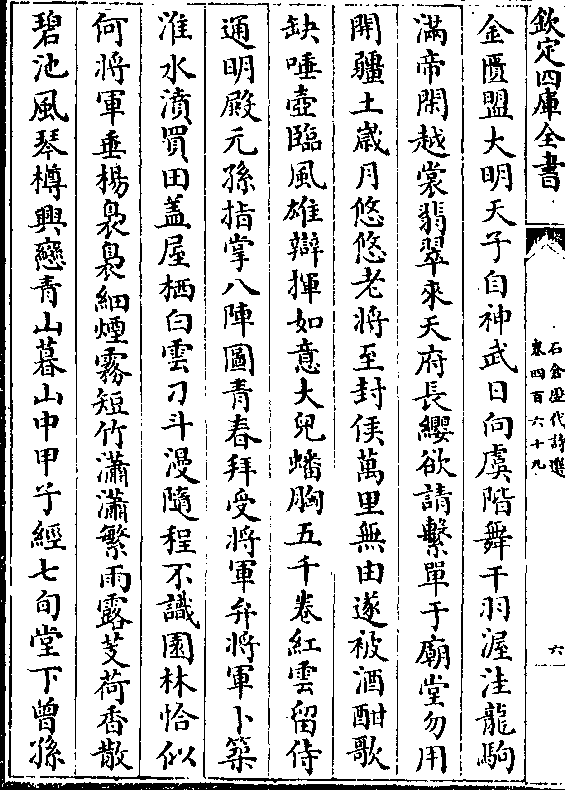 欽定四庫全書
石倉歷代詩選
卷四百六十九
六
金匱盟大明天子自神武日向虞階舞干羽渥洼龍駒
滿帝閑越裳翡翠來天府長纓欲請繫單于廟堂勿用
開疆土歲月悠悠老將至封侯萬里無由遂被酒酣歌
缺唾壺臨風雄辯揮如意大兒蟠胸五千卷紅雲留侍
通明殿元孫指掌八陣圖青春拜受將軍弁將軍卜築
淮水濆買田蓋屋栖白雲刁斗漫隨程不識園林恰似
何將軍垂楊裊裊細煙霧短竹瀟瀟繁雨露芰荷香散
碧池風琴樽興戀青山暮山中甲子經七旬堂下曾孫